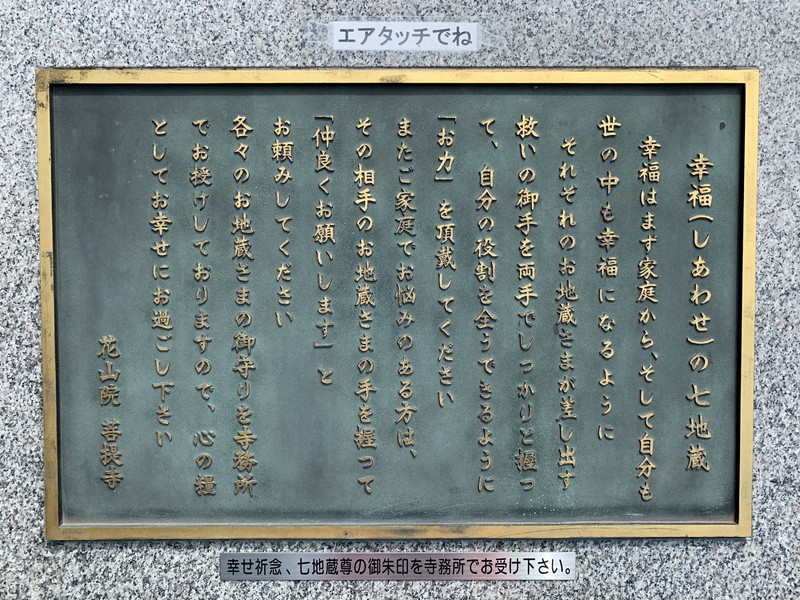 エアタッチでね
幸福(しあわせ)の七地蔵
幸福はまず家庭から、そして自分も
世の中も幸福になるように
それぞれのお地蔵さまが差し出す
救いの御手を両手でしっかりと握っ
て、自分の役割を全うできるように
「お力」を頂戴してください
またご家庭でお悩みのある方は、
その相手のお地蔵さまの手を握って
「仲良くお願いします」と
お頼みしてください
各々のお地蔵さまの御守りを寺務所
でお授けしておりますので、心の糧
としてお幸せにお過ごし下さい
花山院 菩提寺
幸せ祈念、七地蔵尊の御朱印を寺務所でお受け下さい。